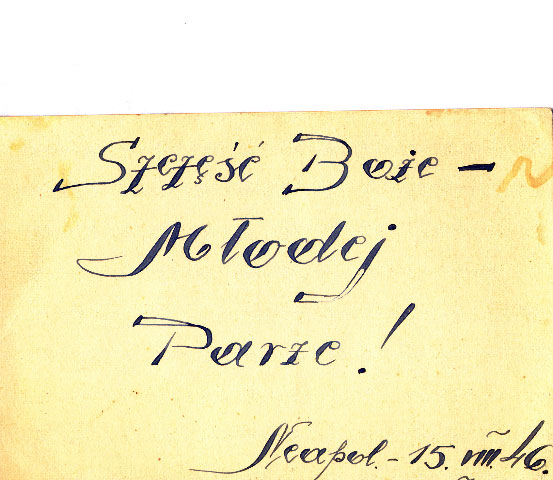 Szczęść Boże –
Młodej
Parze!
Neapol. – 15. VIII. 46.